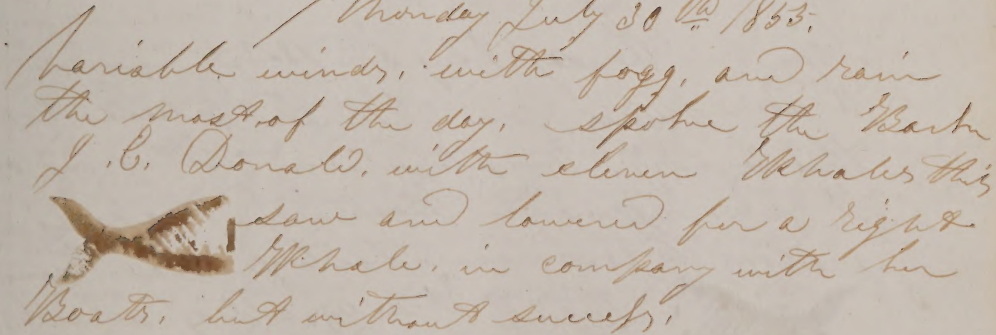 Monday July 30th 1855.
Variable winds, with fogg, and rain
the most of the day, spoke the Bark
J. E. Donald, with eleven Whales this
saw and lowered for a right
Whale, in company with her
Boats, but without success,